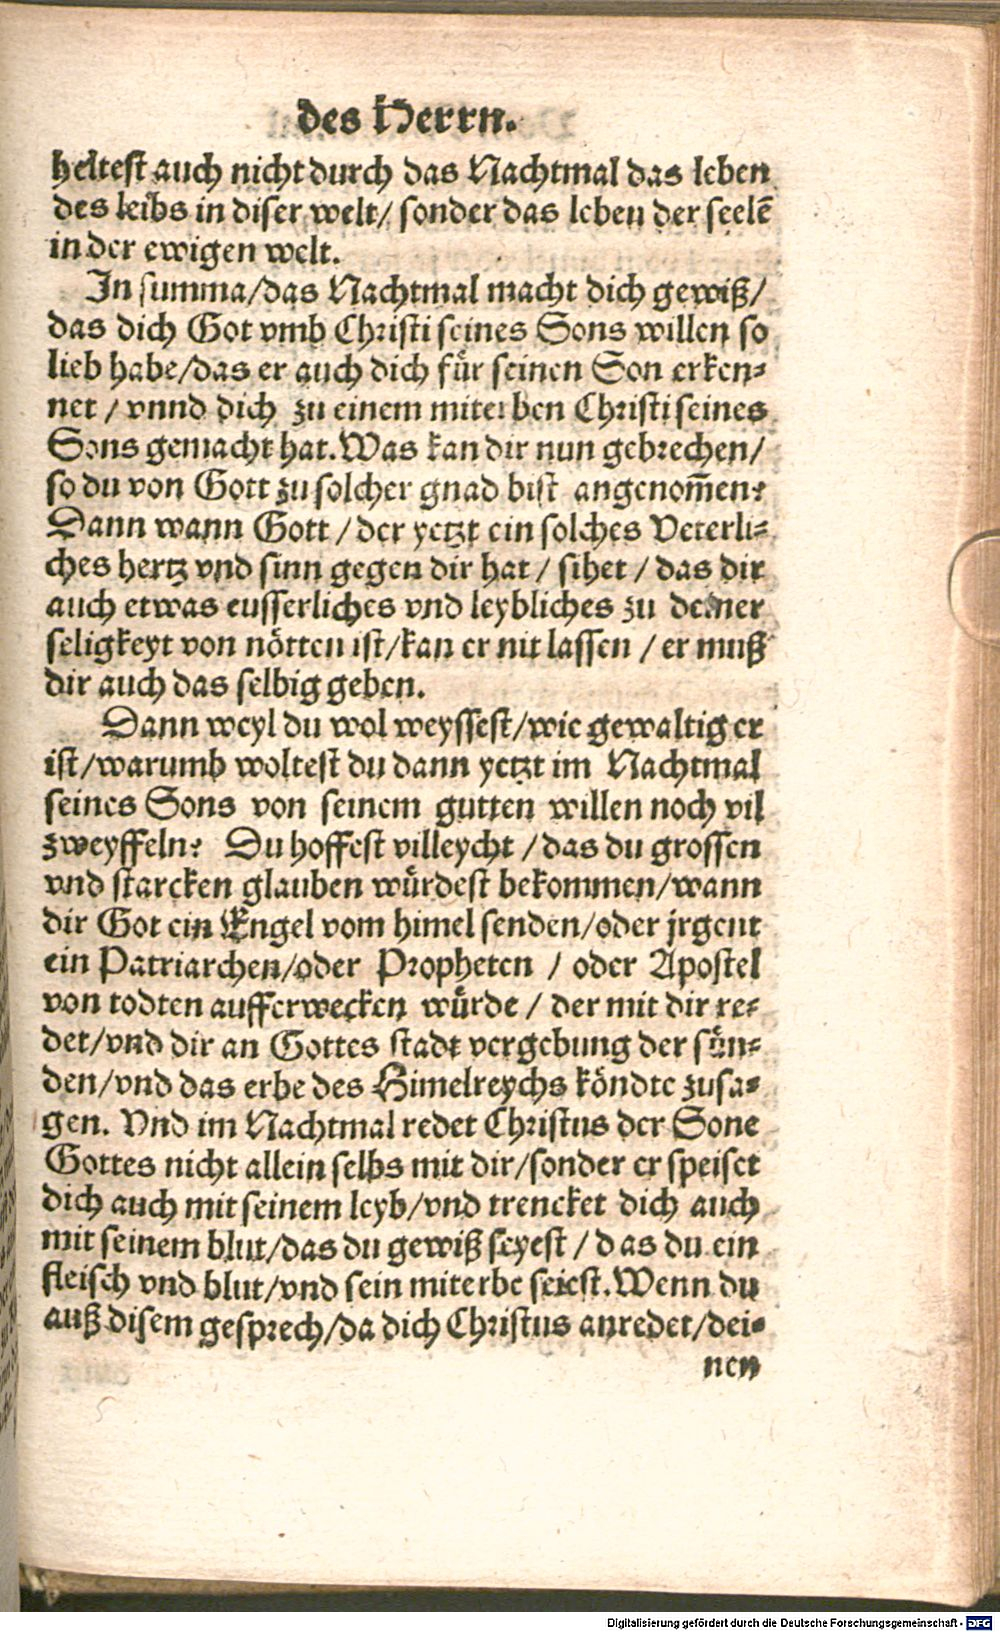 des Herrn.
heltest auch nicht durch das Nachtmal das leben
des leibs in diser welt/ sonder das leben der seelē
in der ewigen welt.
In summa/das Nachtmal macht dich gewiß/
das dich Got vmb Christi seines Sons willen so
lieb habe/das er auch dich fuͤr seinen Son erken-
net / vnnd dich zu einem miterben Christi seines
Sons gemacht hat. Was kan dir nun gebrechen/
so du von Gott zu solcher gnad bist angenom̄en?
Dann wann Gott / der yetzt ein solches Veterli-
ches hertz vnd sinn gegen dir hat / sihet / das dir
auch etwas eusserliches vnd leybliches zu deiner
seligkeyt von nötten ist/kan er nit lassen / er muß
dir auch das selbig geben.
Dann weyl du wol weyssest/wie gewaltig er
ist/warumb woltest du dann yetzt im Nachtmal
seines Sons von seinem gutten willen noch vil
zweyffeln? Du hoffest villeycht / das du grossen
vnd starcken glauben wuͤrdest bekommen/wann
dir Got ein Engel vom himel senden/oder jrgent
ein Patriarchen/oder Propheten / oder Apostel
von todten aufferwecken wuͤrde / der mit dir re-
det/vnd dir an Gottes stadt vergebung der suͤn-
den/vnd das erbe des Himelreychs köndte zusa-
gen. Vnd im Nachtmal redet Christus der Sone
Gottes nicht allein selbs mit dir/sonder er speiset
dich auch mit seinem leyb/vnd trencket dich auch
mit seinem blut/das du gewiß seyest / das du ein
fleisch vnd blut/vnd sein miterbe seiest. Wenn du
auß disem gesprech/da dich Christus anredet/dei-
nen
Digitalisierung gefördert durch die Deutsche Forschungsgemeinschaft - DFG